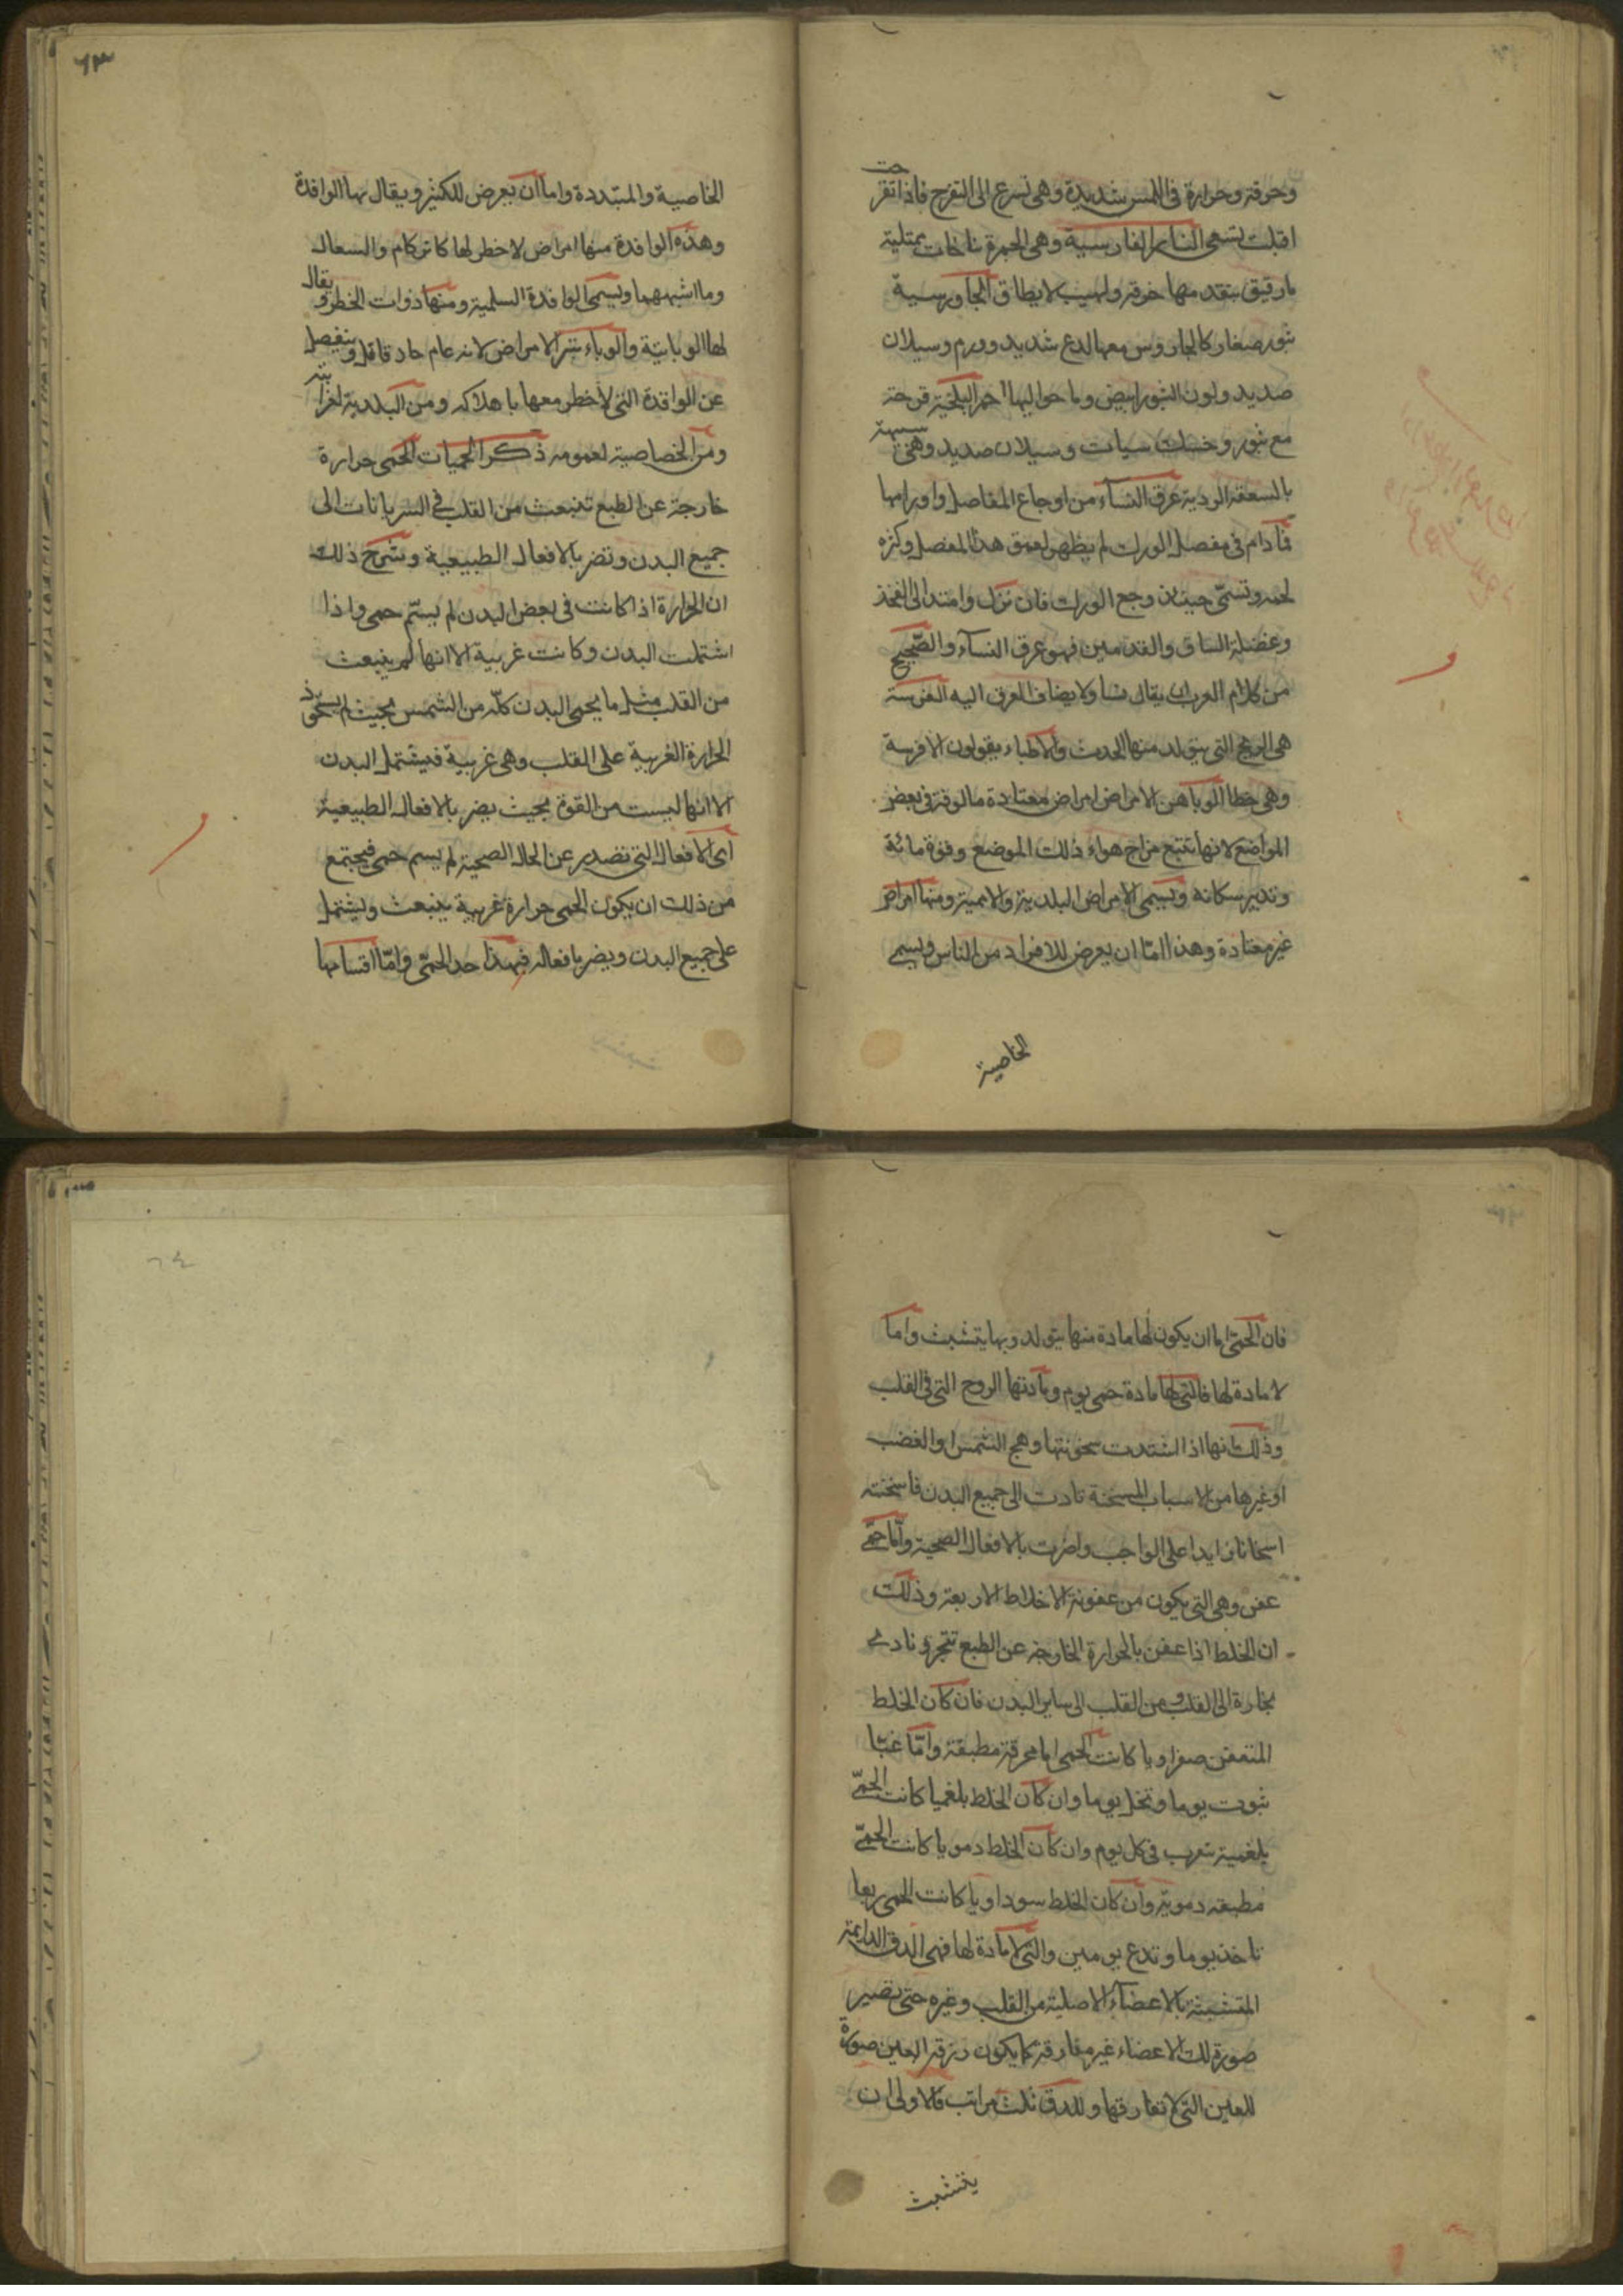 وحرقة وحرارة في اللمس شديدة وهي تسرع الى التقرح فاذا تقرحت
اقبلت تسمى النار الفارسية وهي الجمرة نفاخات ممتلية
ما رقيق يتقدمها حرقة ولهيب لا يطاق الجاورسية
بثور صغار كالجاورس معها لدع شديد وورم وسيلان
صديد ولون البثور ابيض وما حواليها احمر البلخية قرحة
مع بثور وسيلان صديد وهي
بالسعفة الردية عرق النساء من اوجاع المفاصل واورامها
فما دام في مفصل الورك لم يظهر لعمق هذا المفصل وكثره
لحمه وتسمى حينئذ وجع الورك فان نزل وامتد الى الفخذ
وعضلة الساق والقدمين فهو عرق النساء والصحيح
من كلام العرب ان يقال نسا ولا يضاف العرق اليه الفرسة
هي الريح التي يتولد منها الحدث والاطباء يقولون الافرسة
وهي خطا الوبا من الامراض امراض معتادة مالوفة في بعض
المواضع لانها تتبع مزاج هواء ذلك الموضع وقوة مائة
وتدبير سكانه ويسمى الامراض البلدية والاممية ومنها امراض
غير معتادة وهذا امّا ان يعرض للافراد من الناس ويسمى
الخاصية
٦٣
الخاصية والمتبددة واما ان يعرض للكثير ويقال بها الوافدة
وهذه الوافدة منها امراض لا خطر لها كالزكام والسعال
وما اشبههما ويسمى الوافدة السليمة ومنها ذوات الخطر ويقال
لها الوبائيّة والوباء شر الامراض لانه عام حاد قاتل وينفصل
عن الوافدة التي لا خطر معها باهلاكه ومن البلدية لغرابته
ومن الخاصية لعمومه ذكر الحميات الحمى حرارة
خارجة عن الطبع تنبعث من القلب في الشريانات الى
جميع البدن وتضر بالافعال الطبيعية وشرح ذلك
ان الحرارة اذا كانت في بعض البدن لم يسّم حمى واذا
اشتملت البدن وكانت غريبة الا انها لم ينبعث
من القلب مثل ما يحمى البدن كلّه من الشمس بحيث لم يستحوذ
الحرارة الغريبة على القلب وهي غريبة فيشتمل البدن
الا انها ليست من القوة بحيث يضر بالافعال الطبيعية
اى الافعال التي تصدر عن الحال الصحية لم يسم حمى فيجتمع
من ذلك ان يكون الحمى حرارة غريبة ينبعث ويشتمل
على جميع البدن ويضر بافعاله فهذا حد الحمىّ وامّا اقسامها
فان الحمىّ اما ان يكون لها مادة منها يتولد وبها يتشبث واما
لا مادة لها فالتي لها مادة حمى يوم ومادتها الروح التي في القلب
وذلك انها اذا اشتدت سخونتها وهج الشمس او الغضب
او غيرها من الاسباب المسخنة تادت الى جميع البدن فاسخنته
اسخانا زايدا على الواجب واضرت بالافعال الصحية وامّا حمىّ
عفن وهي التي يكون من عفونة الاخلاط الاربعة وذلك
ان الخلط اذا عفن بالحرارة الخارجة عن الطبع تبخر وتادى
بخاره الى القلب ومن القلب الى ساير البدن فان كان الخلط
المتعفن صفراويا كانت الحمى اما محرقة مطبقة وامّا غبّا
ينوب يوما وتخل يوما وان كان الخلط بلغميا كانت الحمىّ
بلغمية تنوب في كل يوم وان كان الخلط دمويا كانت الحمىّ
مطبقه دمويّة وان كان الخلط سوداويا كانت الحمى ربعا
تاخذ يوما وتدع يومين والتي لا مادة لها فهي الدق الدايمة
المتشبثة بالاعضاء الاصلية من القلب وغيره حتى تصير
صورة لتلك الاعضاء غير مفارقة كما يكون زرقة العين صورة
للعين التي لا تفارقها وللدق ثلث مراتب فالاولى ان
يتشبث
٦٤